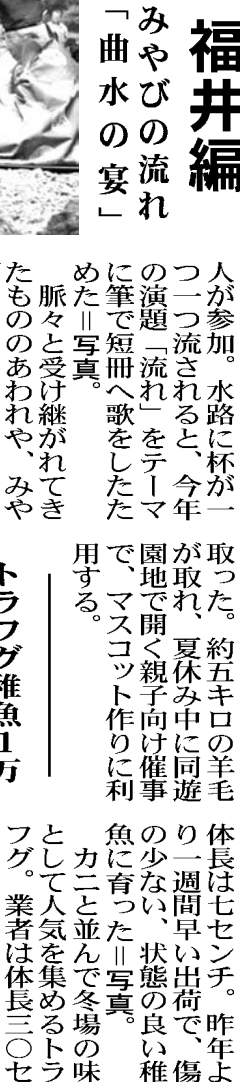 福井編
みやびの流れ
「曲水の宴」
人が参加。水路に杯が一
つ一つ流されると、今年
の演題「流れ」をテーマ
に筆で短冊へ歌をしたた
めた＝写真。
脈々と受け継がれてき
たもののあわれや、みや
取った。約五キロの羊毛
が取れ、夏休み中に同遊
園地で開く親子向け催事
で、マスコット作りに利
用する。
トラフグ稚魚1万
体長は七センチ。昨年よ
り一週間早い出荷で、傷
の少ない、状態の良い稚
魚に育った＝写真。
カニと並んで冬場の味
として人気を集めるトラ
フグ。業者は体長三〇セ